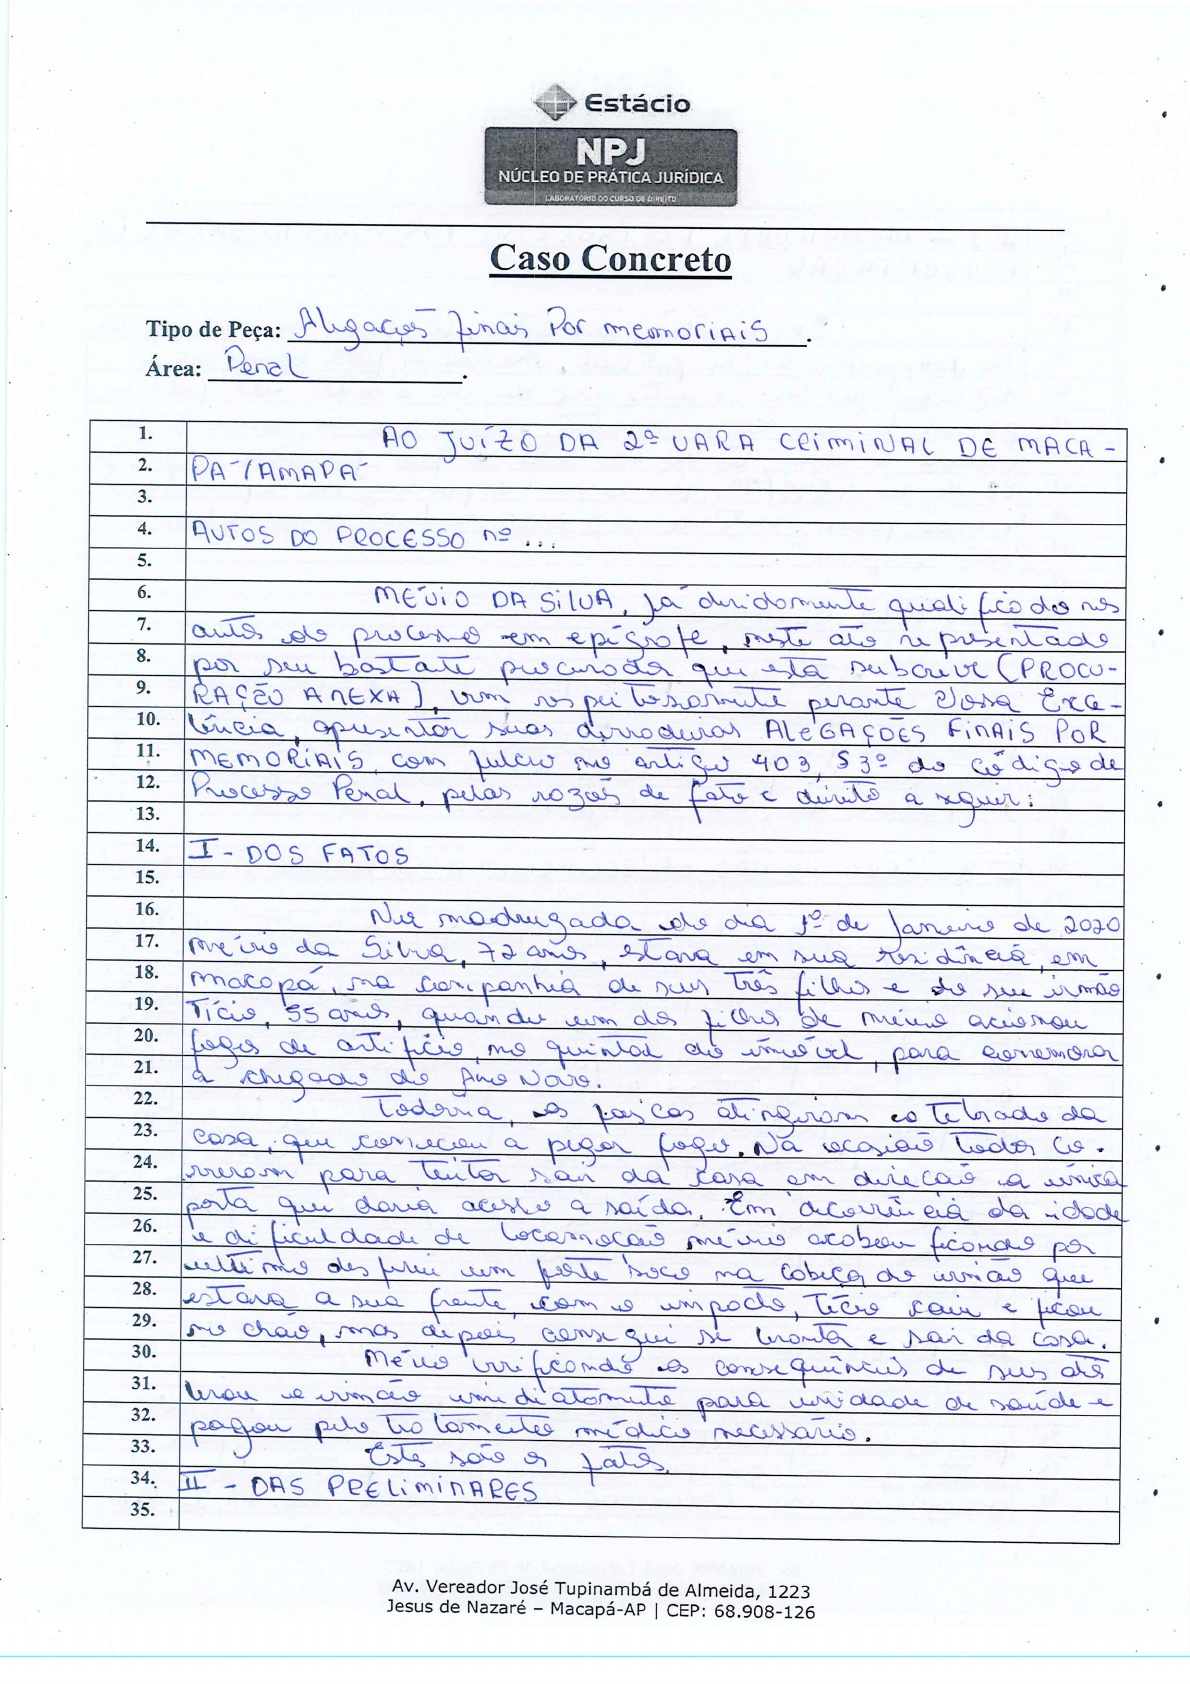 Estácio
NPJ
NÚCLEO DE PRÁTICA JURÍDICA
LABORATÓRIO DO CURSO DE DIREITO
Caso Concreto
Tipo de Peça: Alegações finais Por memoriais.
Área: Penal.
1. AO JUÍZO DA 2ª VARA CRIMINAL DE MACA-
2. PÁ/AMAPÁ
3.
4. AUTOS DO PROCESSO nº ...
5.
6. MÉVIO DA SILVA, já devidamente qualificado nos
7. autos do processo em epígrafe, neste ato representado
8. por seu bastate procurador que esta subscreve (PROCU-
9. RAÇÃO ANEXA), vem respeitosamente perante Vossa Exce-
10. lência, apresentar suas derradeiras ALEGAÇÕES FINAIS POR
11. MEMORIAIS, com fulcro no artigo 403, § 3º do Código de
12. Processo Penal, pelas razões de fato e direito a seguir:
13.
14. I - DOS FATOS
15.
16. Na madrugada do dia 1º de Janeiro de 2020
17. mévio da Silva, 72 anos, estava em sua residência, em
18. macapá, na companhia de seus três filhos e do seu irmão
19. Tício, 55 anos, quando um dos filhos de mévio acionou
20. fogos de artifício, no quintal do imóvel, para comemorar
21. a chegada do Ano Novo.
22. Todavia, as faíscas atingiram o telhado da
23. casa, que começou a pegar fogo. Na ocasião todos co-
24. rreram para tentar sair da casa em direção a única
25. porta que daria acesso a saída. Em decorrência da idade
26. e dificuldade de locomoção mévio acabou ficando por
27. último desferiu um forte soco na cabeça do irmão que
28. estava a sua frente, com o impacto, Tício caiu e ficou
29. no chão, mas depois consegui se levanta e sair da casa.
30. Mévio verificando as consequências de seus atos
31. levou o irmão imediatamente para unidade de saúde e
32. pagou pelo tratamento médico necessário.
33. Estes são os fatos.
34. II - DAS PRELIMINARES
35.
Av. Vereador José Tupinambá de Almeida, 1223
Jesus de Nazaré – Macapá-AP | CEP: 68.908-126